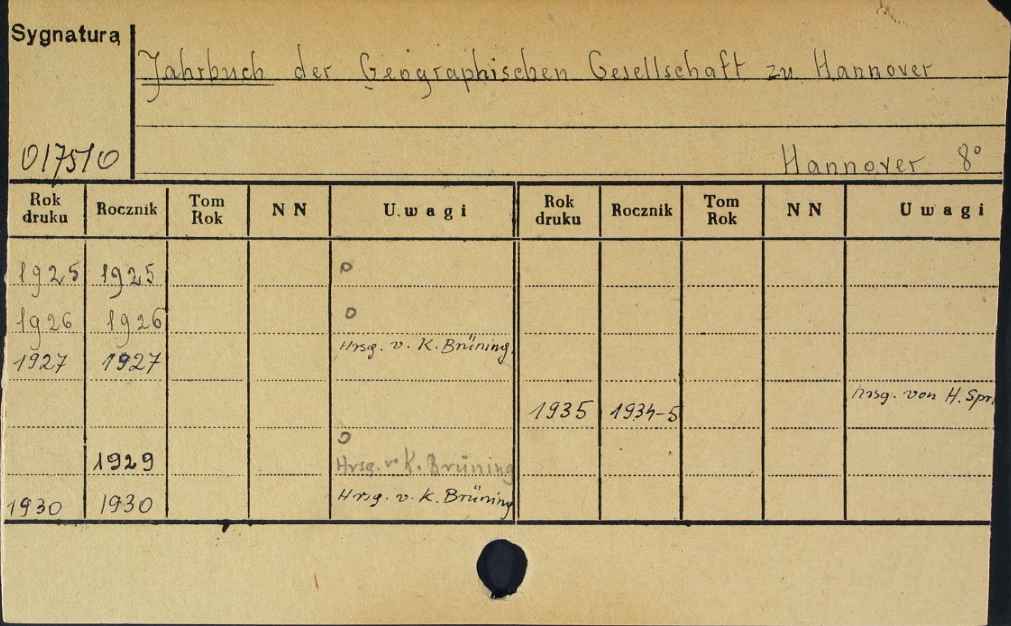 Sygnatura
Jahrbuch der Geographischen Gesellschaft zu Hannover
017510
Hannover 8°
Rok druku Rocznik Tom Rok N N U w a g i Rok druku Rocznik Tom Rok N N U w a g i
1925 1925 o
1926 1926 o
1927 1927 Hrsg. v. K. Brüning.
1935 1934-5 hrsg. von H. Spr.
o
1929 Hrsg. v. K. Brüning
1930 1930 Hrsg. v. K. Brüning